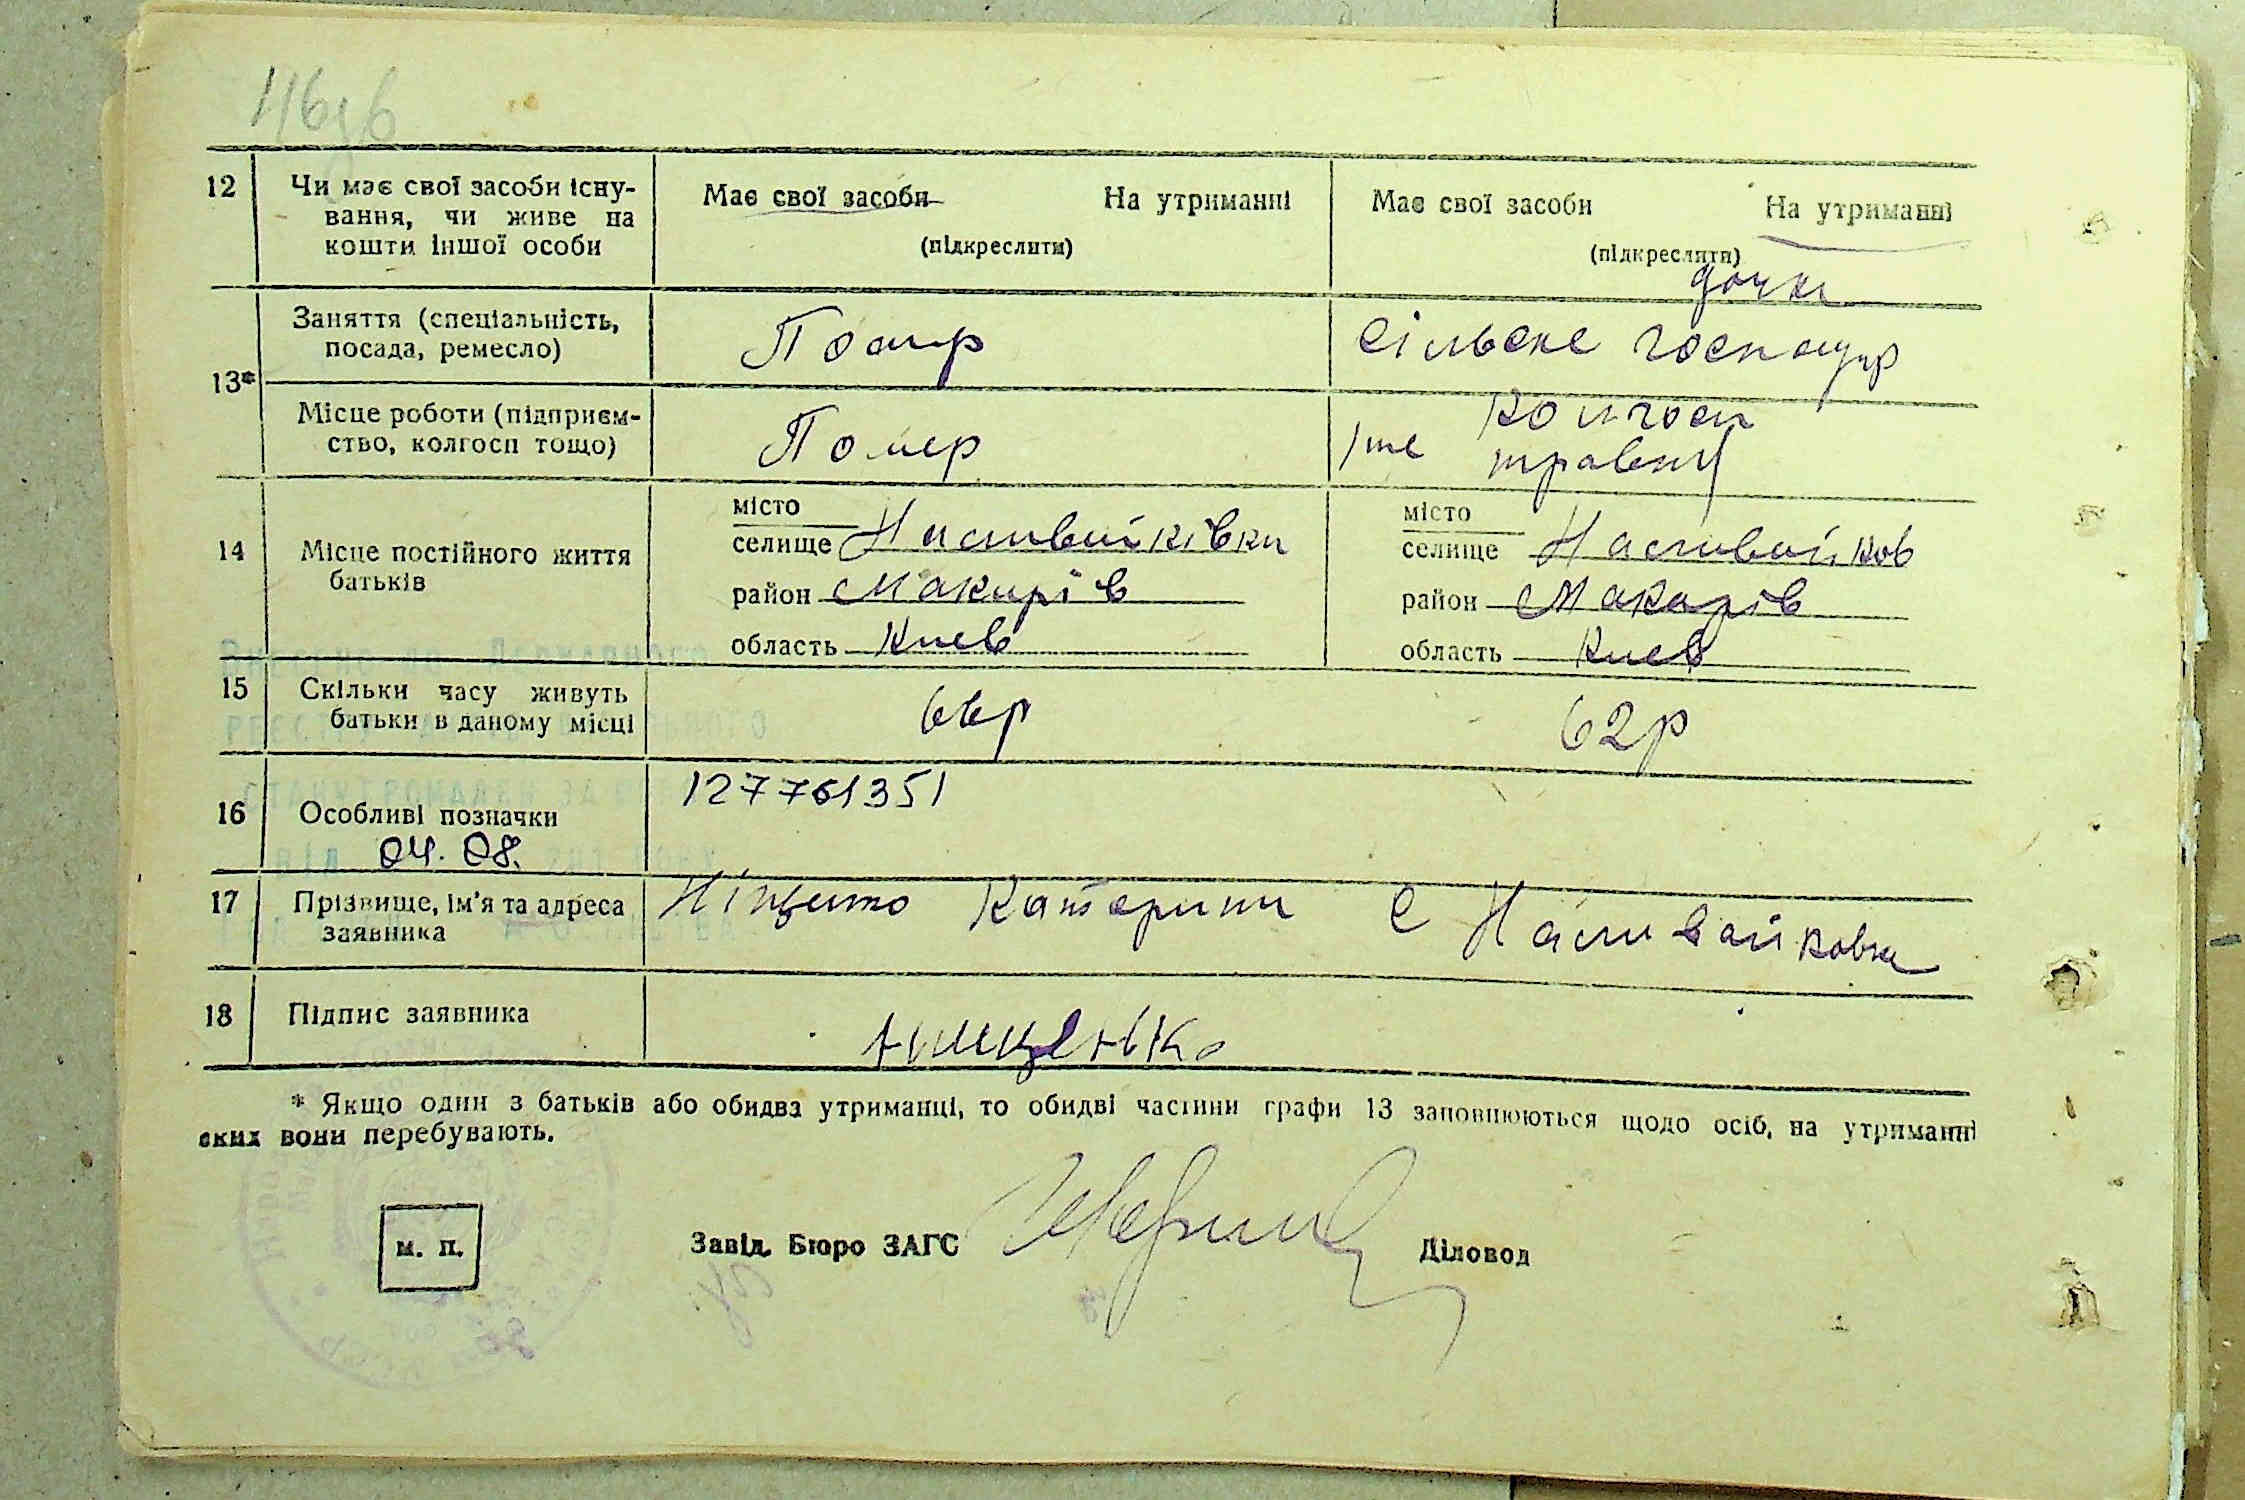 12 Чи має свої засоби існу-
вання, чи живе на
кошти іншої особи
Має свої засоби На утриманні
(підкреслити)
Має свої засоби На утриманні
(підкреслити)
дочки
13*
Заняття (спеціальність,
посада, ремесло)
Помер
Сільське господар
Місце роботи (підприєм-
ство, колгосп тощо)
Помер
колгосп
1ше травня
14 Місце постійного життя
батьків
місто
селище Наливайківка
район Макарів
область Киев
місто
селище Наливайков
район Макарів
область Киев
15 Скільки часу живуть
батьки в даному місці
66р
62р
16 Особливі позначки
04. 08.
127761351
17 Прізвище, ім'я та адреса
заявника
Катерина С Наливайковка
18 Підпис заявника
Нищенко
* Якщо один з батьків або обидва утриманці, то обидві частини графи 13 заповнюються щодо осіб, на утриманні
яких вони перебувають.
м. п.
Завід. Бюро ЗАГС
Діловод